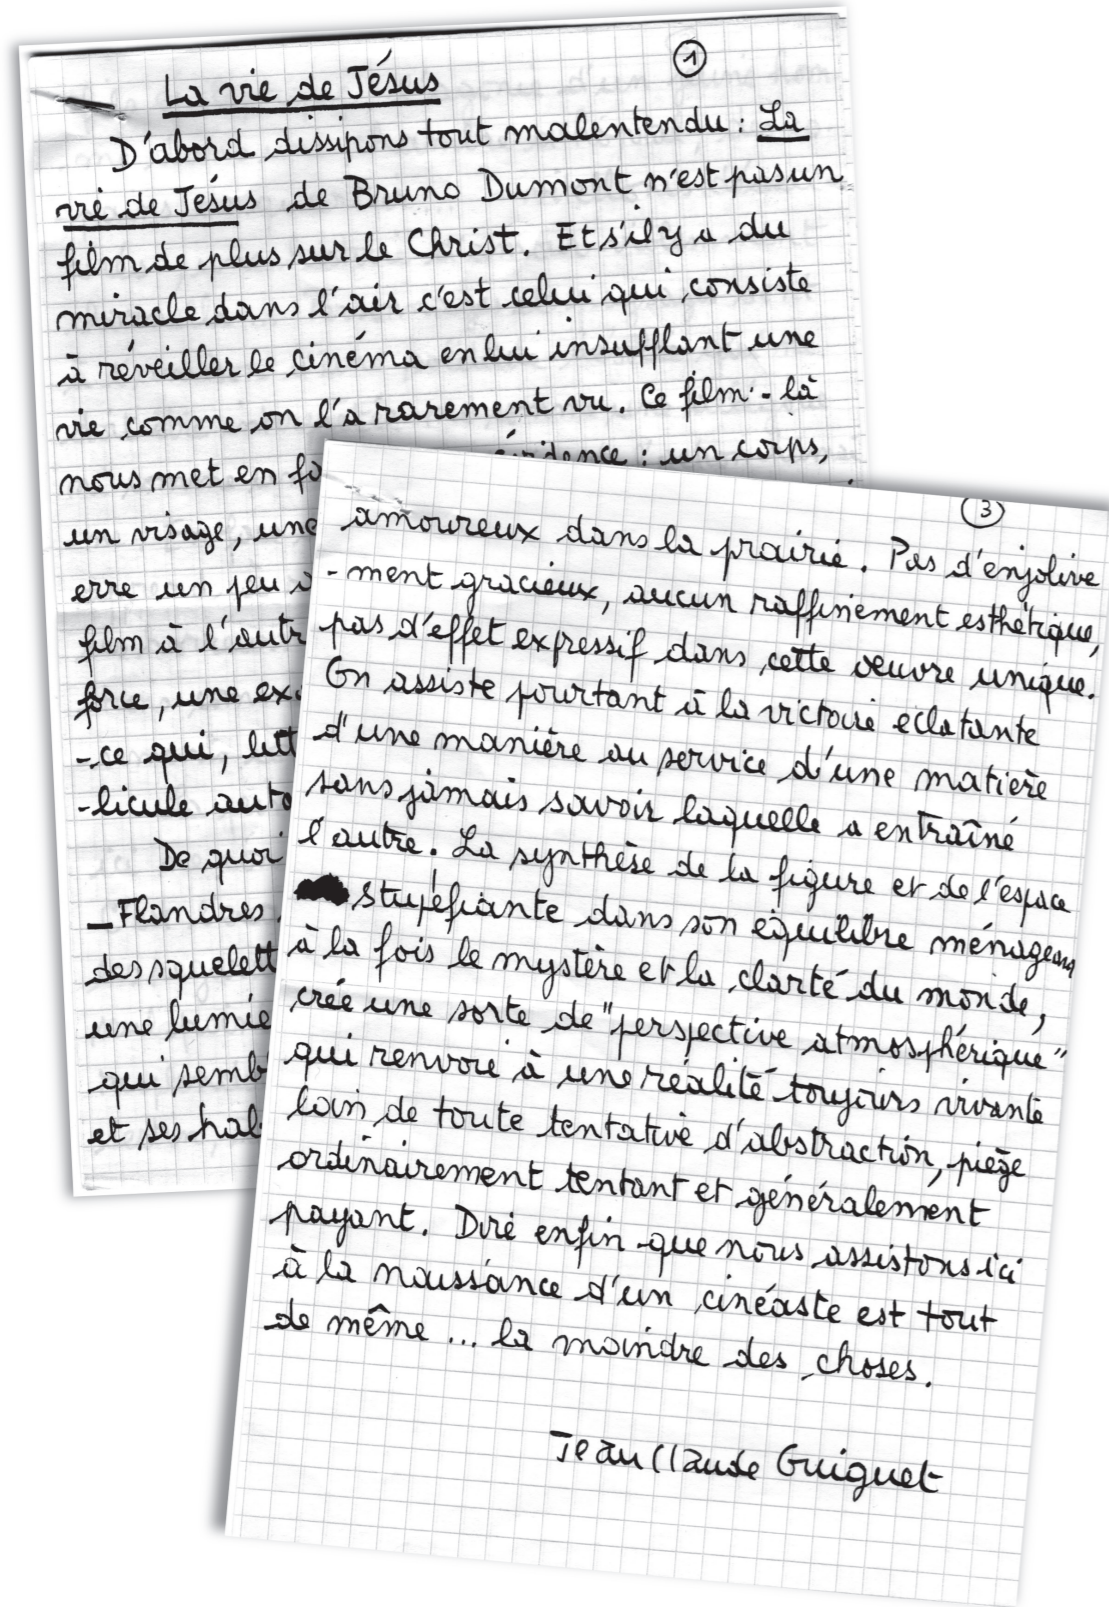 La vie de Jésus
1
D'abord dissipons tout malentendu : La
vie de Jésus de Bruno Dumont n'est pas un
film de plus sur le Christ. Et s'il y a du
miracle dans l'air c'est celui qui consiste
à réveiller le cinéma en lui insufflant une
vie comme on l'a rarement vu. Ce film-là
nous met en fa : un corps,
un visage, une
erre un peu
film à l'autr
force, une ex
-ce qui, litt
-licule auto
De quoi
Flandres
des squelett
une lumiè
qui sembl
et ses hab
3
amoureux dans la prairie. Pas d'enjolive
-ment gracieux, aucun raffinement esthétique,
pas d'effet expressif dans cette oeuvre unique.
On assiste pourtant à la victoire eclatante
d'une manière au service d'une matière
sans jamais savoir laquelle a entraîné
l'autre. La synthèse de la figure et de l'espace
stupéfiante dans son équilibre ménageant
à la fois le mystère et la clarté du monde,
crée une sorte de "perspective atmosphérique"
qui renvoie à une réalité toujours vivante
loin de toute tentative d'abstraction, piège
ordinairement tentant et généralement
payant. Dire enfin que nous assistons ici
à la naissance d'un cinéaste est tout
de même ... la moindre des choses.
Jean Claude Guiguet